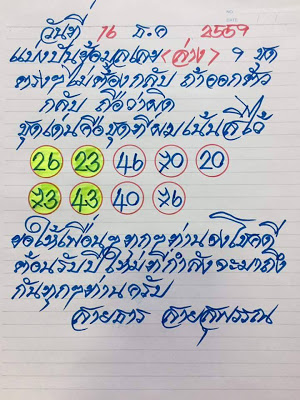 วันที่ 16 ธ.ค 2559
แบ่งปันข้อมูลเลข <ล่าง> 9 ชุด
ตรงๆไม่ต้องกลับ ถ้าออกตัว
กลับ ถือว่าผิด
ชุดเด่นคือชุดที่ผมเน้นสีไว้
26 23 46 70 20
73 43 40 76
ขอให้เพื่อนๆทุกๆท่านจงโชคดี
ต้อนรับปีใหม่ที่กำลังจะมาถึง
กันทุกๆท่านครับ
สายธาร สายสุพรรณ